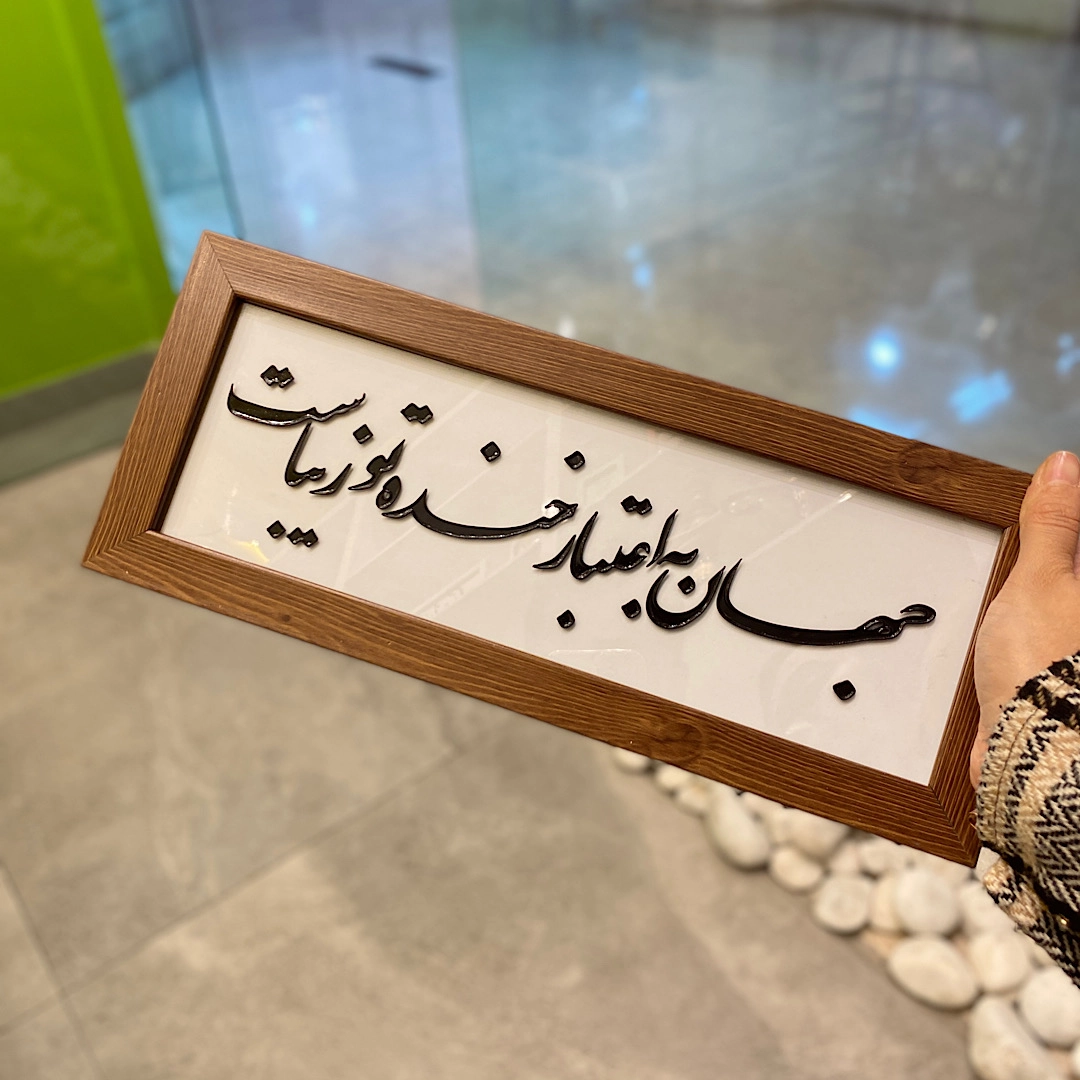 جهان به اعتبار خنده تو زیباست